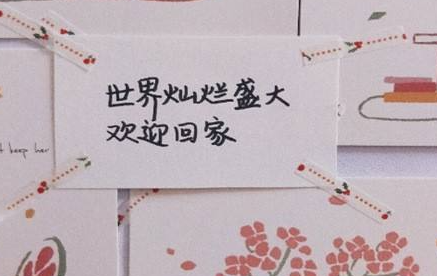 世界灿烂盛大
欢迎回家
t keep her